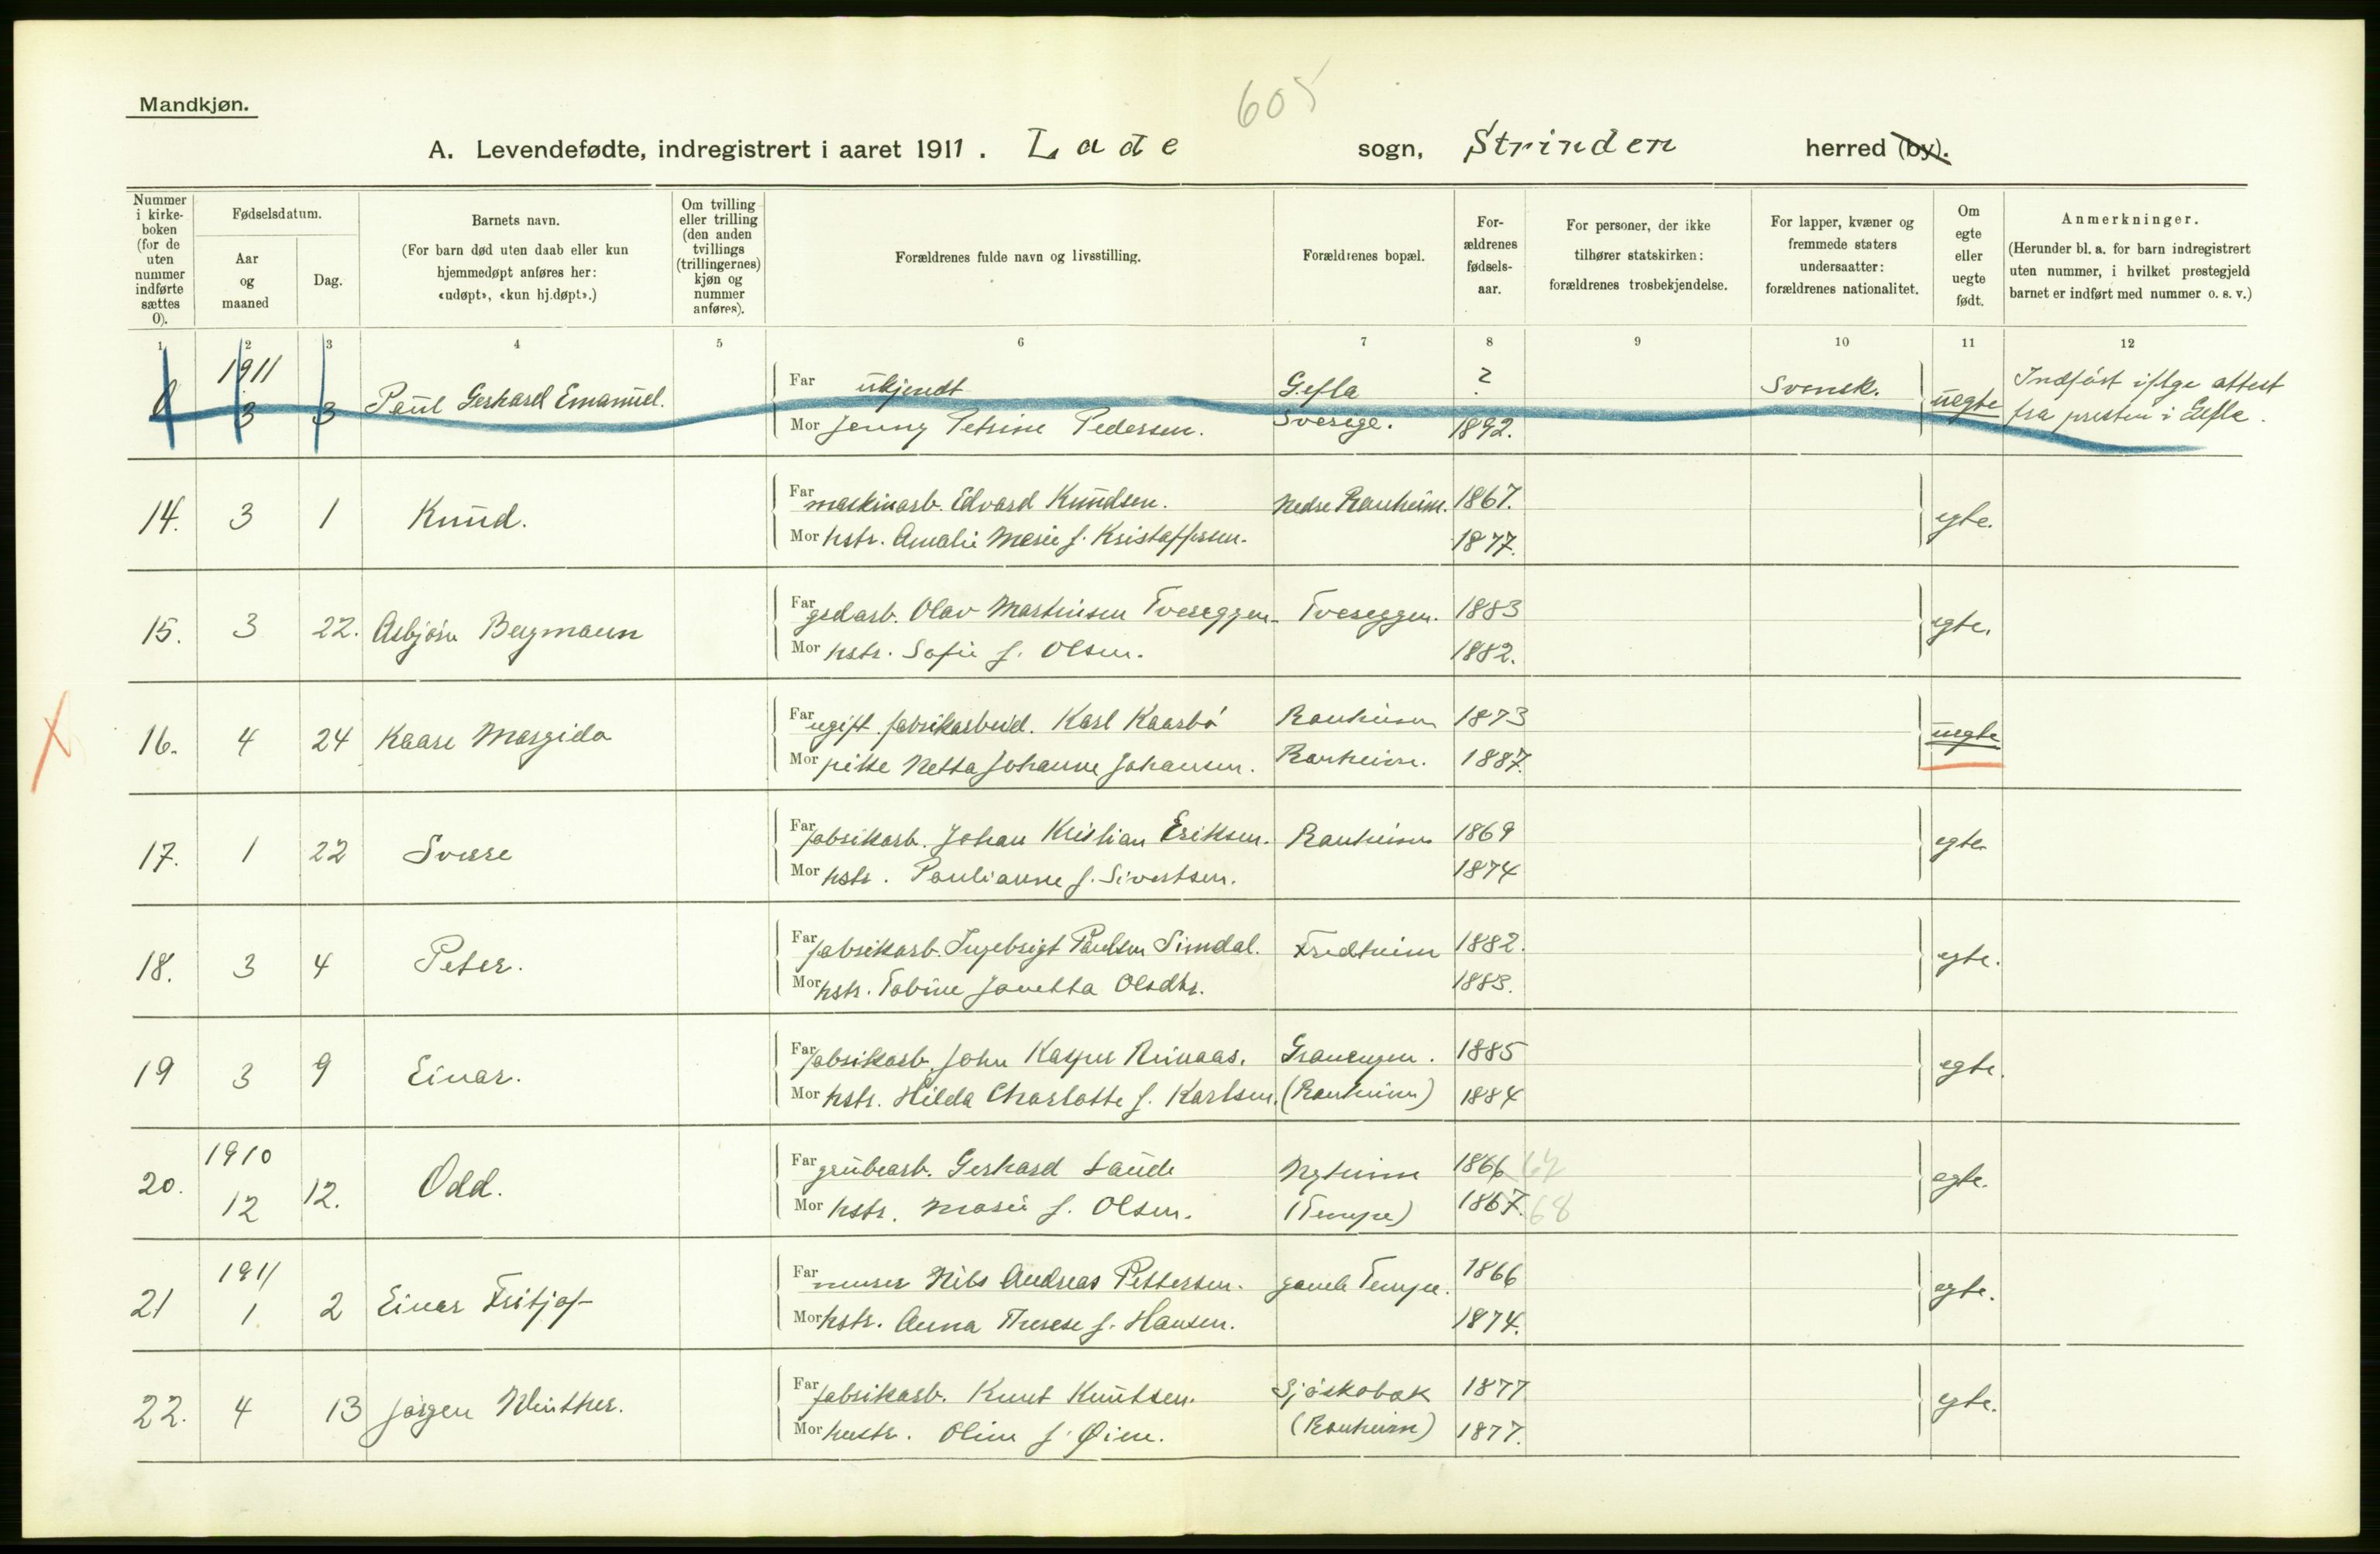 605
Mandkjøn.
A. Levendefødte, indregistrert i aaret 1911. Lade sogn, Strinden herred (by).
Nummer i kirke-boken (for de uten nummer indførte sættes 0).
Fødselsdatum.
Aar og maaned
Dag.
Barnets navn.
(For barn død uten daab eller kun hjemmedøpt anføres her: «udøpt», «kun hj.døpt».)
Om tvilling eller trilling (den anden tvillings (trillingernes) kjøn og nummer anføres).
Forældrenes fulde navn og livsstilling.
Forældrenes bopæl.
For-ældrenes fødsels-aar.
For personer, der ikke tilhører statskirken: forældrenes trosbekjendelse.
For lapper, kvæner og fremmede staters undersaatter: forældrenes nationalitet.
Om egte eller uegte født.
Anmerkninger.
(Herunder bl. a. for barn indregistrert uten nummer, i hvilket prestegjeld barnet er indført med nummer o. s. v.)
1 2 3 4 5 6 7 8 9 10 11 12
0 1911 3 3 Paul Gerhard Emanuel. Far ukjendt Gefla ? Svensk. uegte Indført iflge attest
Mor Jenny Petrine Pedersen. Sverige. 1892. fra presten i Gefle.
14. 3 1 Knud. Far maskinarb. Edvard Knudsen. Nedre Ranheim. 1867. egte.
Mor hstr. Amalie Marie f. Kristoffersen. 1877.
15. 3 22. Asbjørn Bergmann Far grdarb. Olav Martinsen Tvereggen. Tvereggen. 1883 egte.
Mor hstr. Sofie f. Olsen. 1882.
16. 4 24 Kaare Margido Far ugift fabrikarbeid. Karl Kaarbø Ranheim 1873 uegte
Mor pike Netta Johanne Johansen. Ranheim. 1887.
17. 1 22 Sverre Far fabrikarb. Johan Kristian Eriksen. Ranheim 1869 egte.
Mor hstr. Paulianne f. Sivertsen. 1874
18. 3 4 Peter. Far fabrikarb. Ingebrigt Paulsen Simdal. Fredheim 1882. egte.
Mor hstr. Tobine Janetta Olsdtr. 1883.
19 3 9 Einar. Far fabrikarb. John Kasper Reinaas. Granengen. 1885 egte.
Mor hstr. Hilda Charlotte f. Karlsen. (Ranheim) 1884
20. 1910 12 12. Odd. Far grubearb. Gerhard Laude Nyheim 1866 67 egte.
Mor hstr. Marie f. Olsen. (Tempe) 1867. 68
21 1911 1 2 Einar Fritjof Far murer Nils Andreas Pettersen. gamle Tempe. 1866 egte.
Mor hstr. Anna Therese f. Hansen. 1874.
22. 4 13 Jørgen Winther. Far fabrikarb. Knut Knutsen. Sjøskobak 1877 egte.
Mor hustr. Oline f. Øien. (Ranheim) 1877.